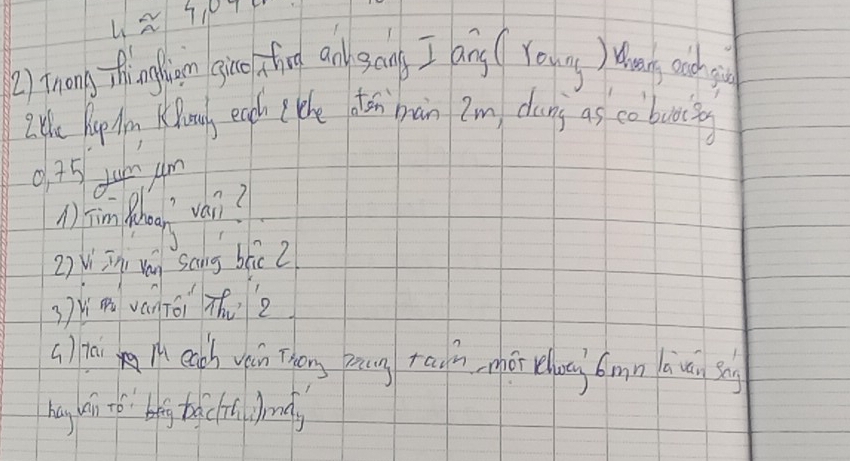 4 ≈ 4,04
2) Trong thí nghiệm giao thoa ánh sáng I âng ( Young ) khoảng cách giữa
2 khe hẹp 1m khoảng cách 2 khe đến màn 2m, dùng as có bước sóng
0,75 μm
1) Tìm khoảng vân ?
2) Vị trí vân sáng bậc 2
3) Vị trí vân tối thứ 2
4) Tại M cách vân trong trung tâm một khoảng 6mn là vân sáng
hay vân tối bậc (thứ) mấy